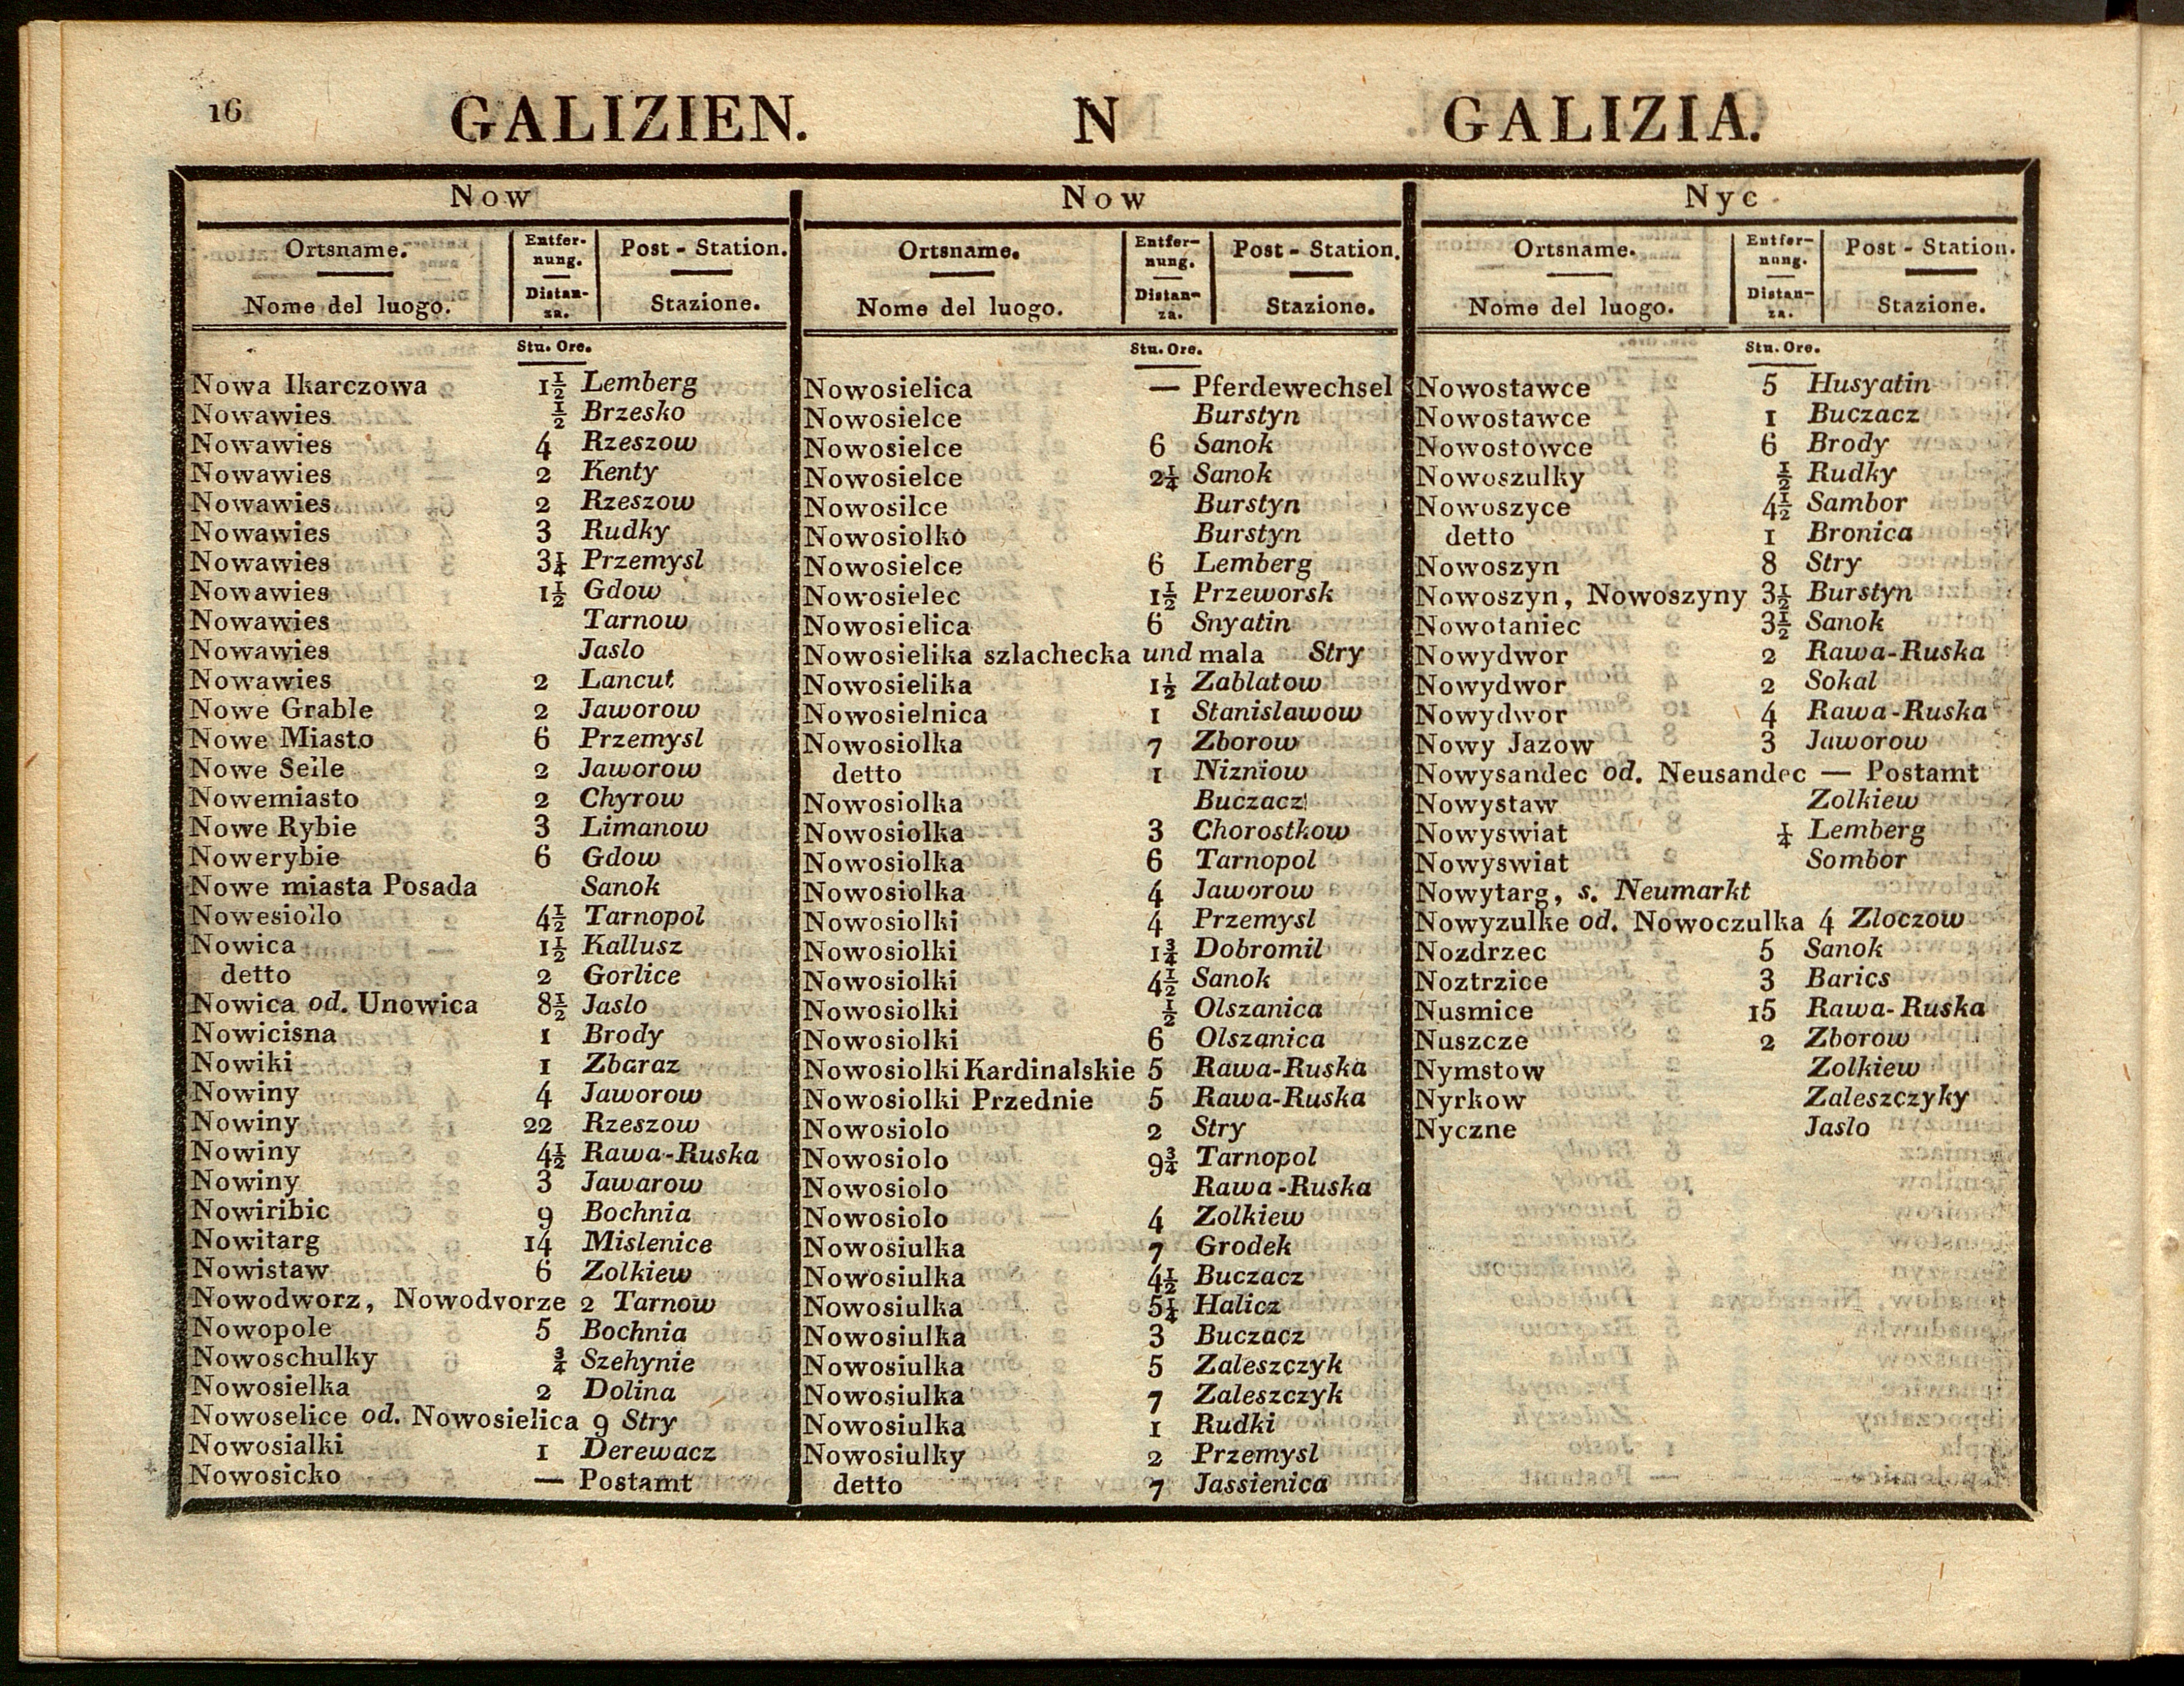 16 GALIZIEN. N GALIZIA.
Now
Ortsname. Entfer- Post - Station.
nung.
Nome del luogo. Distan- Stazione.
za.
Stu. Ore.
Nowa Ikarczowa 1½ Lemberg
Nowawies ½ Brzesko
Nowawies 4 Rzeszow
Nowawies 2 Kenty
Nowawies 2 Rzeszow
Nowawies 3 Rudky
Nowawies 3¼ Przemysl
Nowawies 1½ Gdow
Nowawies Tarnow
Nowawies Jaslo
Nowawies 2 Lancut
Nowe Grable 2 Jaworow
Nowe Miasto 6 Przemysl
Nowe Seile 2 Jaworow
Nowemiasto 2 Chyrow
Nowe Rybie 3 Limanow
Nowerybie 6 Gdow
Nowe miasta Posada Sanok
Nowesiollo 4½ Tarnopol
Nowica 1½ Kallusz
detto 2 Gorlice
Nowica od. Unowica 8½ Jaslo
Nowicisna 1 Brody
Nowiki 1 Zbaraz
Nowiny 4 Jaworow
Nowiny 22 Rzeszow
Nowiny 4½ Rawa-Ruska
Nowiny 3 Jawarow
Nowiribic 9 Bochnia
Nowitarg 14 Mislenice
Nowistaw 6 Zolkiew
Nowodworz, Nowodvorze 2 Tarnow
Nowopole 5 Bochnia
Nowoschulky ¾ Szehynie
Nowosielka 2 Dolina
Nowoselice od. Nowosielica 9 Stry
Nowosialki 1 Derewacz
Nowosicko — Postamt
Now
Ortsname. Entfer- Post - Station.
nung.
Nome del luogo. Distan- Stazione.
za.
Stu. Ore.
Nowosielica — Pferdewechsel
Nowosielce Burstyn
Nowosielce 6 Sanok
Nowosielce 2¼ Sanok
Nowosilce Burstyn
Nowosiolko Burstyn
Nowosielce 6 Lemberg
Nowosielec 1½ Przeworsk
Nowosielica 6 Snyatin
Nowosielika szlachecka und mala Stry
Nowosielika 1½ Zablatow
Nowosielnica 1 Stanislawow
Nowosiolka 7 Zborow
detto 1 Nizniow
Nowosiolka Buczacz
Nowosiolka 3 Chorostkow
Nowosiolka 6 Tarnopol
Nowosiolka 4 Jaworow
Nowosiolki 4 Przemysl
Nowosiolki 1¾ Dobromil
Nowosiolki 4½ Sanok
Nowosiolki ½ Olszanica
Nowosiolki 6 Olszanica
Nowosiolki Kardinalskie 5 Rawa-Ruska
Nowosiolki Przednie 5 Rawa-Ruska
Nowosiolo 2 Stry
Nowosiolo 9¾ Tarnopol
Nowosiolo Rawa-Ruska
Nowosiolo 4 Zolkiew
Nowosiulka 7 Grodek
Nowosiulka 4½ Buczacz
Nowosiulka 5¼ Halicz
Nowosiulka 3 Buczacz
Nowosiulka 5 Zaleszczyk
Nowosiulka 7 Zaleszczyk
Nowosiulka 1 Rudki
Nowosiulky 2 Przemysl
detto 7 Jassienica
Nyc
Ortsname. Entfer- Post - Station.
nung.
Nome del luogo. Distan- Stazione.
za.
Stu. Ore.
Nowostawce 5 Husyatin
Nowostawce 1 Buczacz
Nowostowce 6 Brody
Nowoszulky ½ Rudky
Nowoszyce 4½ Sambor
detto 1 Bronica
Nowoszyn 8 Stry
Nowoszyn, Nowoszyny 3½ Burstyn
Nowotaniec 3½ Sanok
Nowydwor 2 Rawa-Ruska
Nowydwor 2 Sokal
Nowydwor 4 Rawa-Ruska
Nowy Jazow 3 Jaworow
Nowysandec od. Neusandec — Postamt
Nowystaw Zolkiew
Nowyswiat ¼ Lemberg
Nowyswiat Sombor
Nowytarg, s. Neumarkt
Nowyzulke od. Nowoczulka 4 Zloczow
Nozdrzec 5 Sanok
Noztrzice 3 Barics
Nusmice 15 Rawa-Ruska
Nuszcze 2 Zborow
Nymstow Zolkiew
Nyrkow Zaleszczyky
Nyczne Jaslo